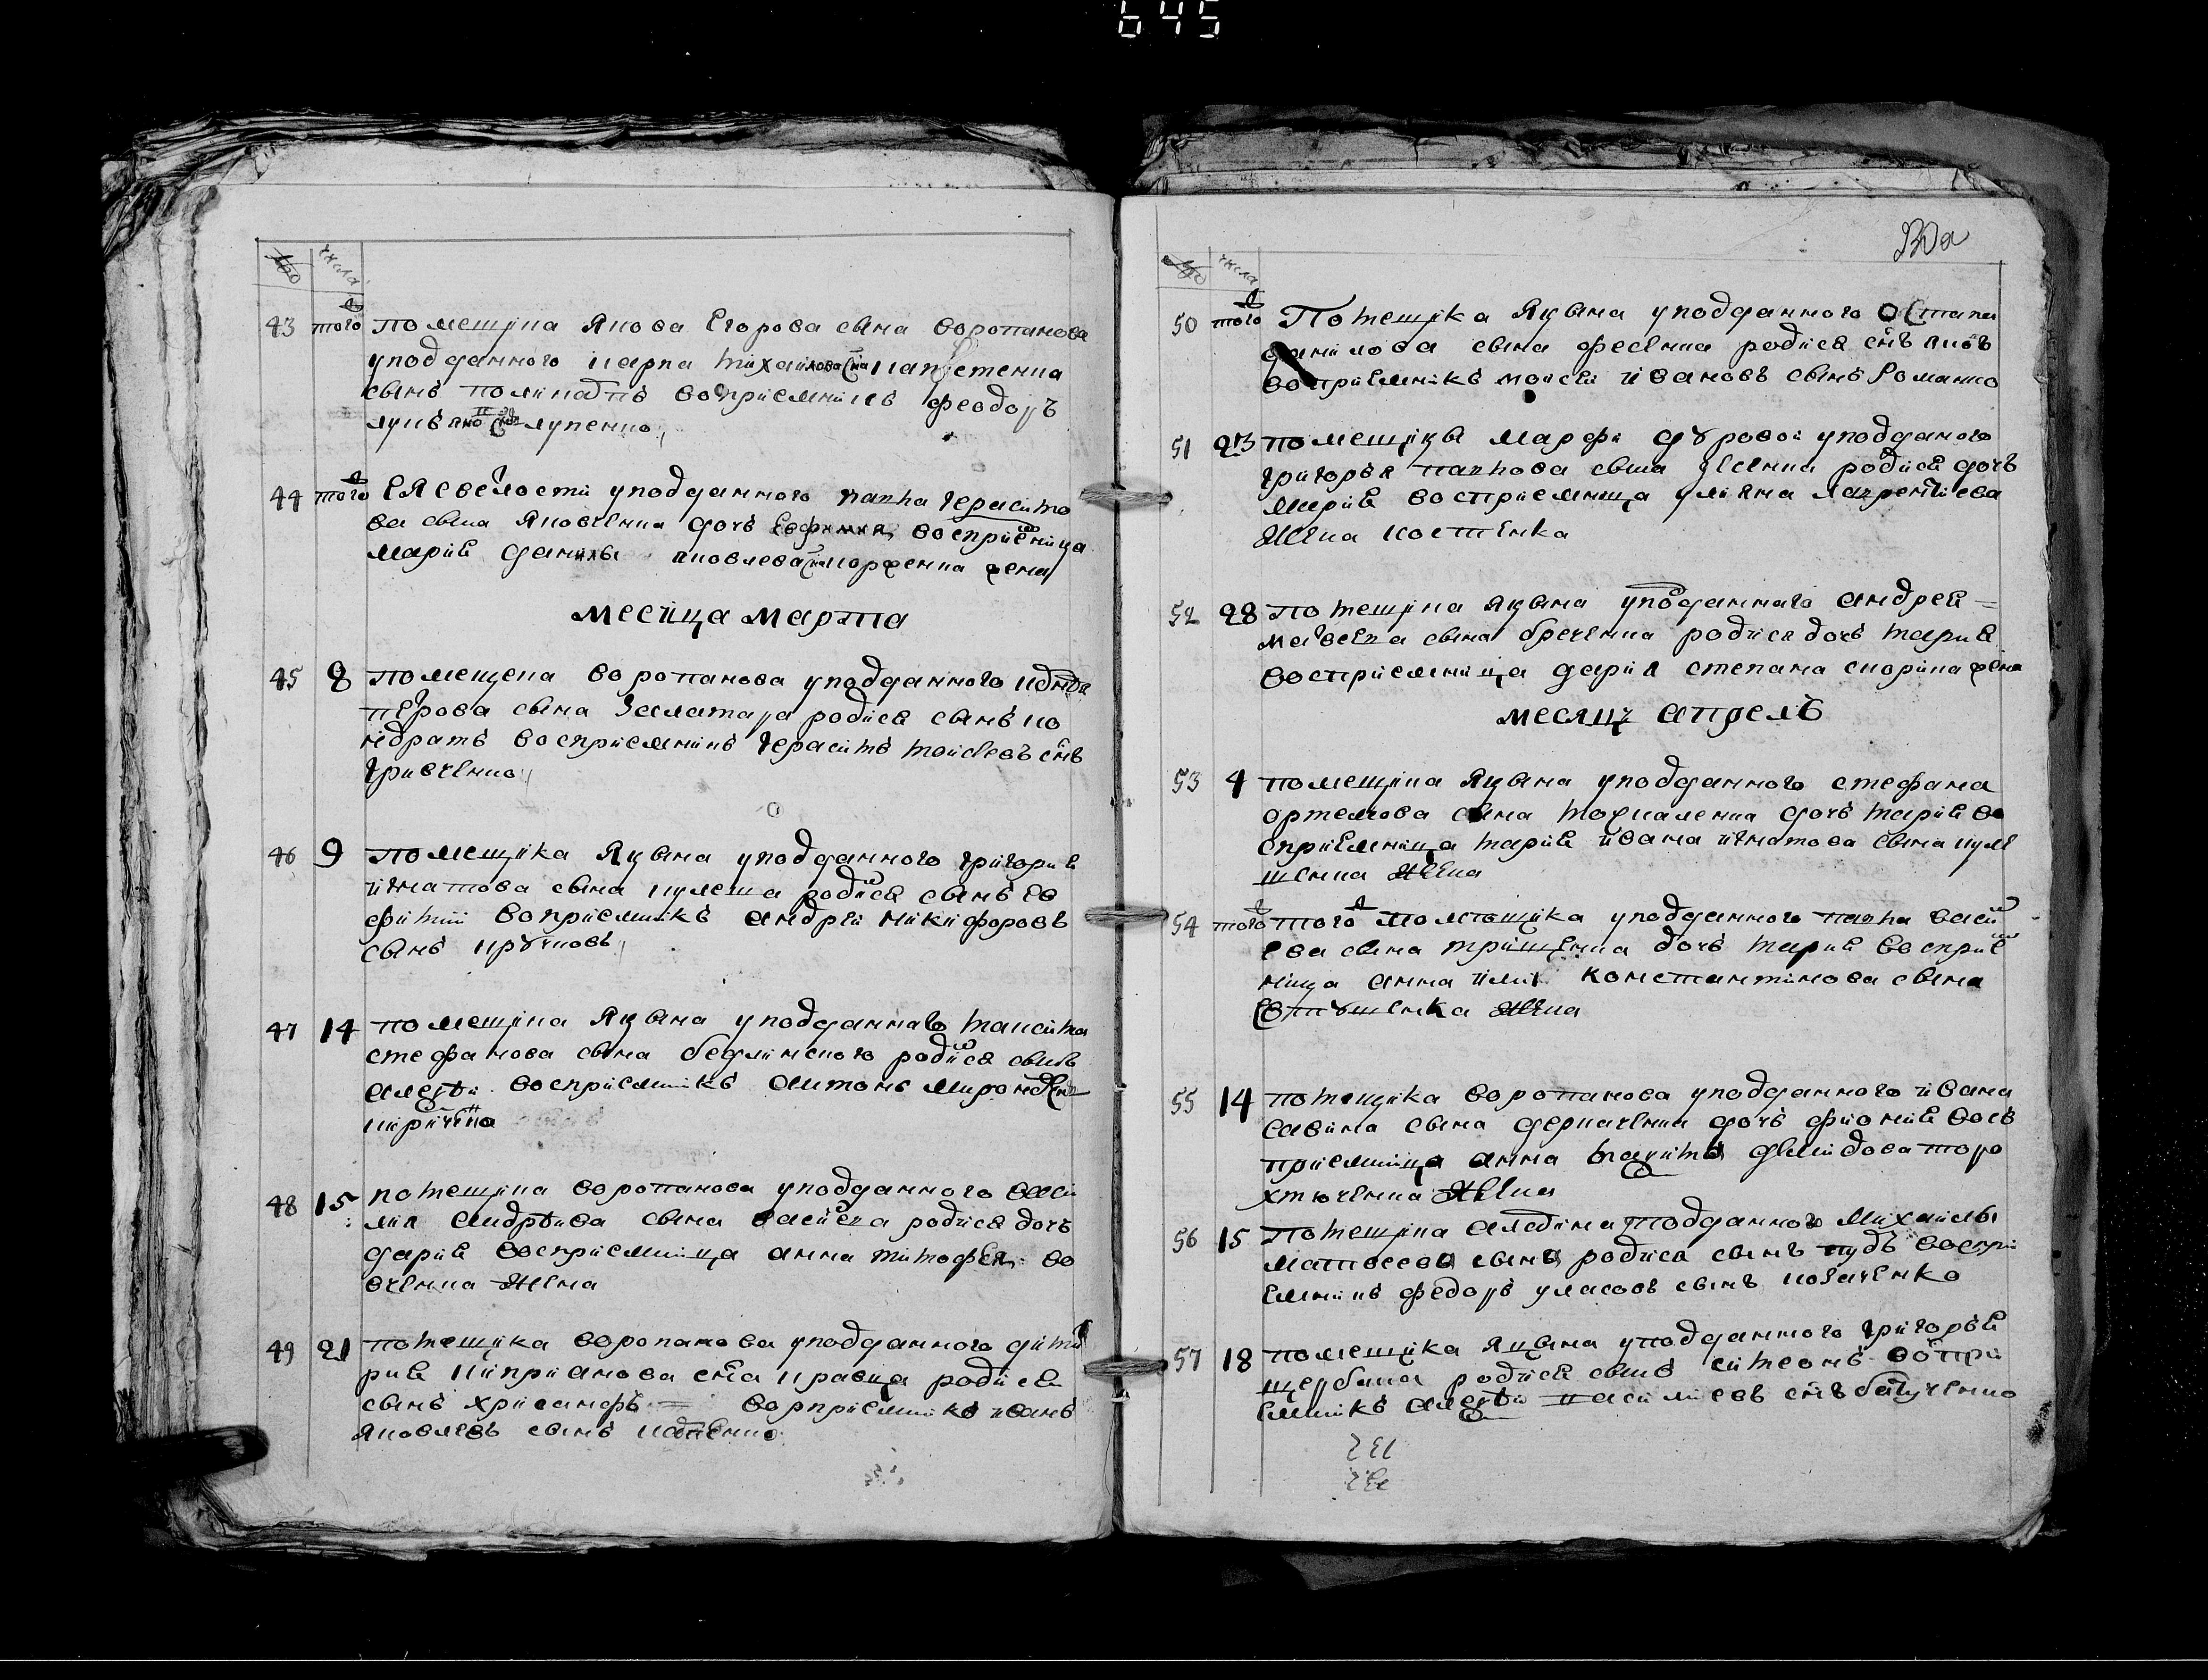 645
№ числа
43 того помещика якова Егорова сына воропанова
уподданного карпа михайлова сна капустенка
сынъ поликарпъ восприемникъ феодоръ
лукьяно снъ лупенко
44 того Ея светлости уподданного павла герасимо
ва сына яковченка дочь Евфимия восприемница
мария данила яковлева сна корженка жена
месяца марта
45 8 помещека воропанова уподданного
петрова сына Залатара родися сынъ ко
ндратъ восприемникъ герасимъ мойсеевъ снъ
гривченко
46 9 помещика Яцына уподданного григория
игнатова сына кулеша родился сынъ ев
фимий воприемникъ андрей никифоровъ
сынъ кручковъ
47 14 помещика Яцына уподданнаго максима
стефанова сына бедлинского родился сынъ
алексѣй восприемникъ антонъ миронов
киричека
48 15 помещика воропанова уподданного васи
лия андрѣива сына родися дочь
дария восприемница анна тимофея во
вченка жена
49 21 помещика воропанова уподданного дими
рия киприанова сна кравца родися
сынъ хрисанфъ = ворприемникъ иванъ
яковлевъ сынъ
№ числа
50 того Помещика Яцына уподданного Остапа
данилова сына фесенка родися снъ яковъ
воприемникъ мойсей ивановъ сынъ Романко
51 23 помещицы марфы дуровой уподданого
григорья павлова сына усенка родися дочь
мария восприемница улияна лаврентиева
жена костенка
52 28 помещика яцына уподданнаго андрея =
матвеева сына бреченка родися дочь мария
восприемница дария степана скорика жена
месяцъ апрель
53 4 помещика яцына уподданного стефана
ортемова сына москаленка дочь мария во
сприемница мария ивана игнатова сына куле
шенка жена
54 того того помещика уподданного павла васи
ева сына трищенка дочь мария восприе
ница анна илии константинова сына
Евтушенка жена
55 14 помещика воропанова уподданного ивана
савина сына деркаченка дочь фиония вось
приемница анна максима демидова торо
хтюченка жена
56 15 помещика алебина подданного михайлы
матвеева сына родися сынъ кудъ воспри
емникъ федоръ уласовъ сынъ козаченко
57 18 помещика яцына уподданного григорья
щербака родися сынъ симеонъ вопри
емникъ алексѣй василиевъ снъ батученко